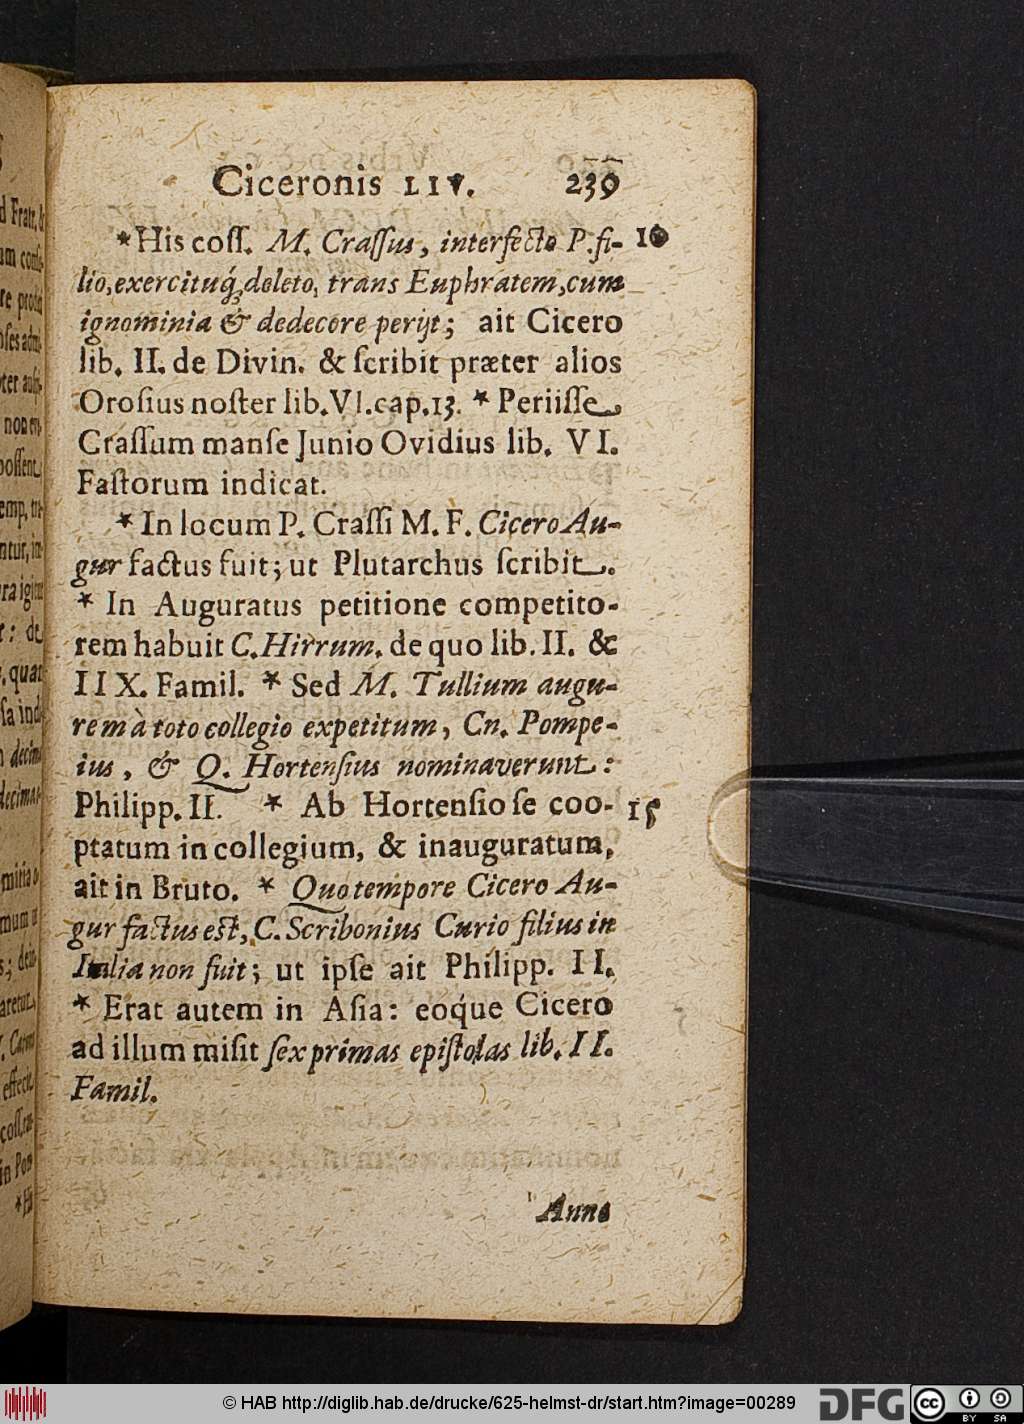 Ciceronis LIV. 239
*His coſſ. M. Craſſus, interfecto P. fi- 10
lio, exercituq́; deleto, trans Euphratem, cum
ignominia & dedecore perijt; ait Cicero
lib. II. de Divin. & ſcribit præter alios
Oroſius noſter lib. VI. cap. 13. * Periiſſe
Craſſum manſe Junio Ovidius lib. VI.
Faſtorum indicat.
*In locum P. Craſſi M. F. Cicero Au-
gur factus fuit; ut Plutarchus ſcribit.
* In Auguratus petitione competito-
rem habuit C. Hirrum. de quo lib. II. &
IIX. Famil. * Sed M. Tullium augu-
rem à toto collegio expetitum, Cn. Pompe-
ius, & Q. Hortenſius nominaverunt:
Philipp. II. * Ab Hortenſio ſe coo- 15
ptatum in collegium, & inauguratum,
ait in Bruto. * Quo tempore Cicero Au-
gur factus eſt, C. Scribonius Curio filius in
Italia non fuit; ut ipſe ait Philipp. II.
* Erat autem in Aſia: eoq́ue Cicero
ad illum miſit ſex primas epiſtolas lib. II.
Famil.
Anno
© HAB http://diglib.hab.de/drucke/625-helmst-dr/start.htm?image=00289
DFG
cc
BY SA